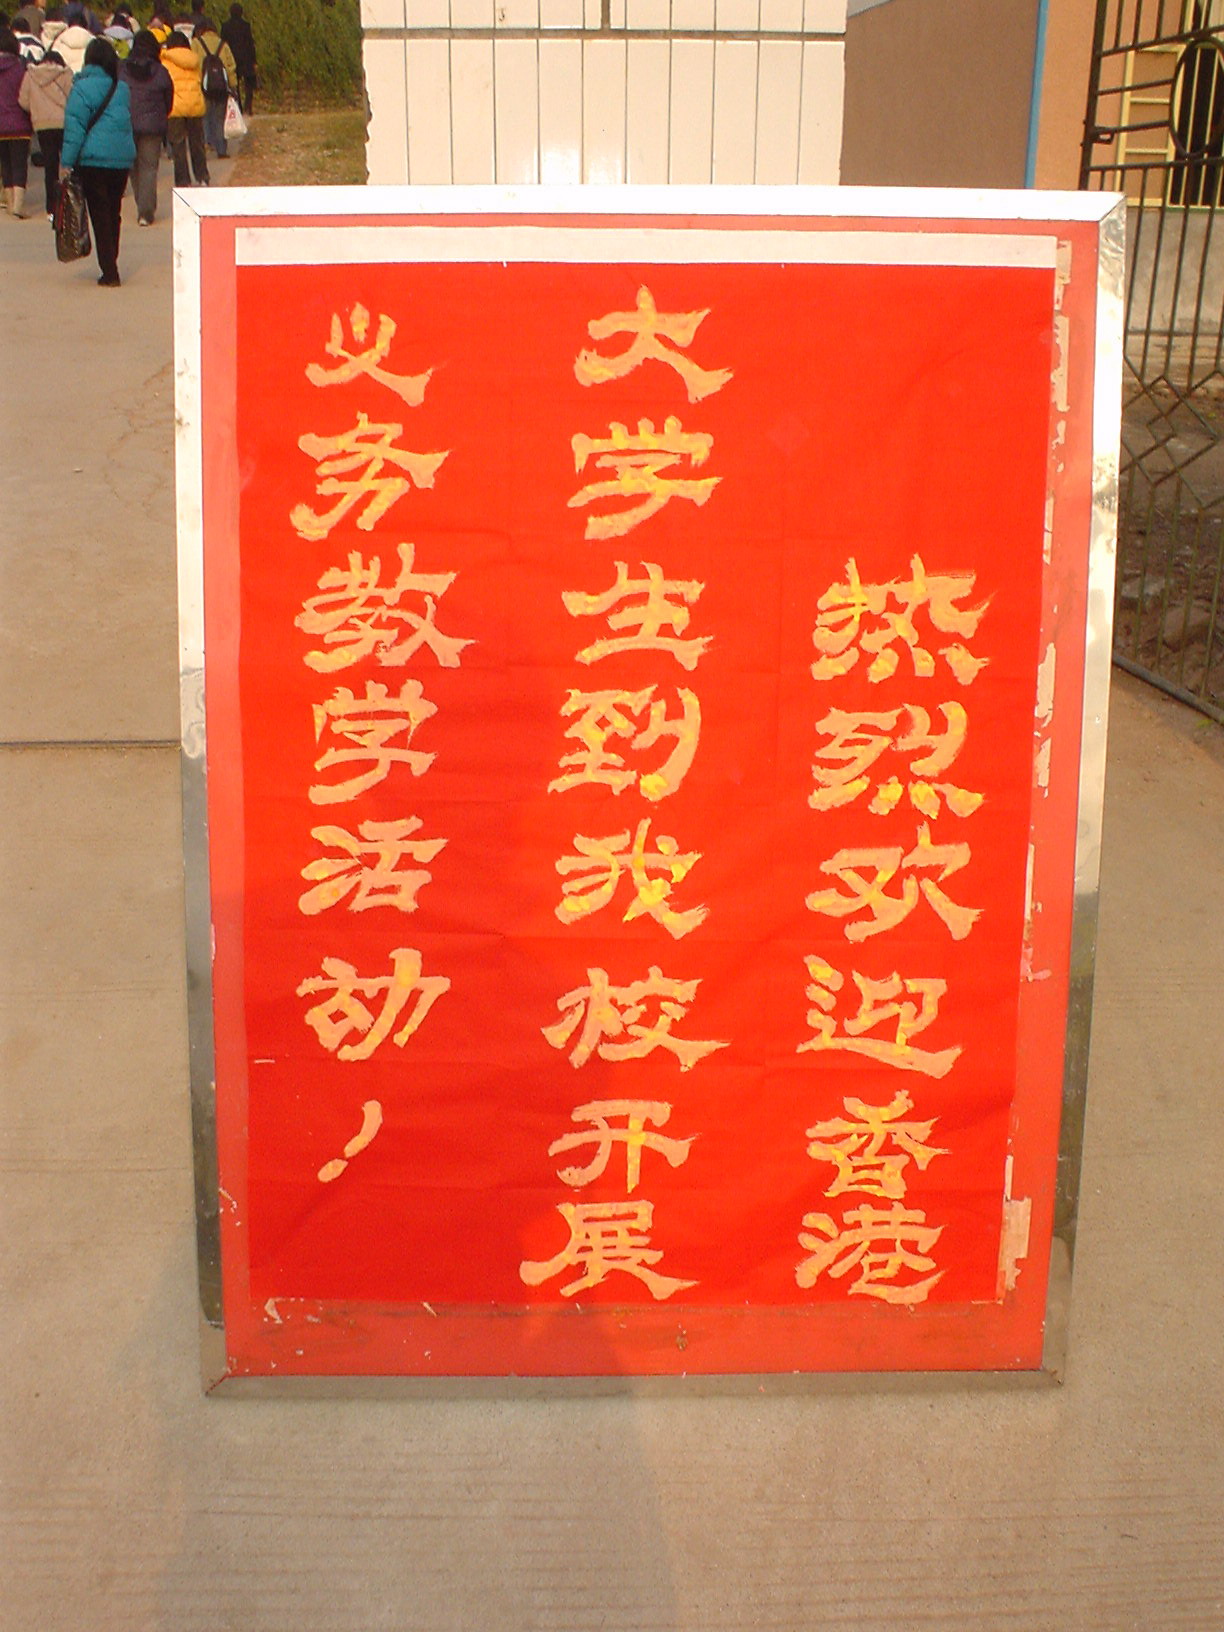 热烈欢迎香港
大学生到我校开展
义务教学活动！